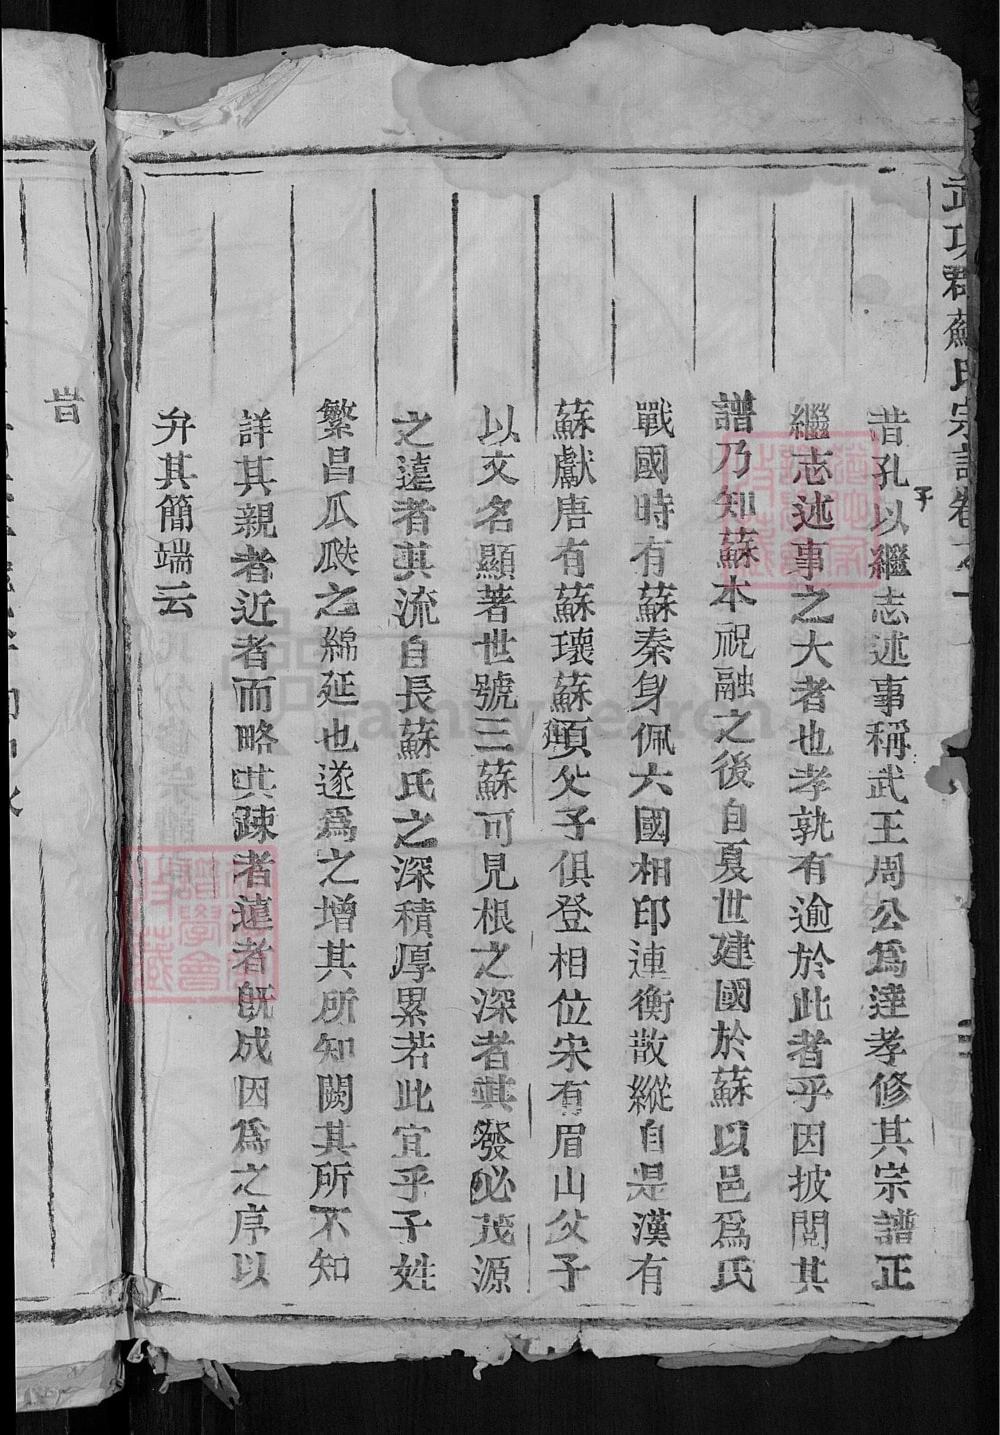 武功郡蘇氏宗譜卷之一
昔孔子以繼志述事稱武王周公爲達孝修其宗譜正
繼志述事之大者也孝孰有逾於此者乎因披閲其
譜乃知蘇本祝融之後自夏世建國於蘇以邑爲氏
戰國時有蘇秦身佩六國相印連衡散縱自是漢有
蘇獻唐有蘇瓌蘇頲父子俱登相位宋有眉山父子
以文名顯著世號三蘇可見根之深者其發必茂源
之遠者其流自長蘇氏之深積厚累若此宜乎子姓
繁昌瓜瓞之綿延也遂爲之增其所知闕其所不知
詳其親者近者而略其疎者遠者旣成因爲之序以
弁其簡端云
昔